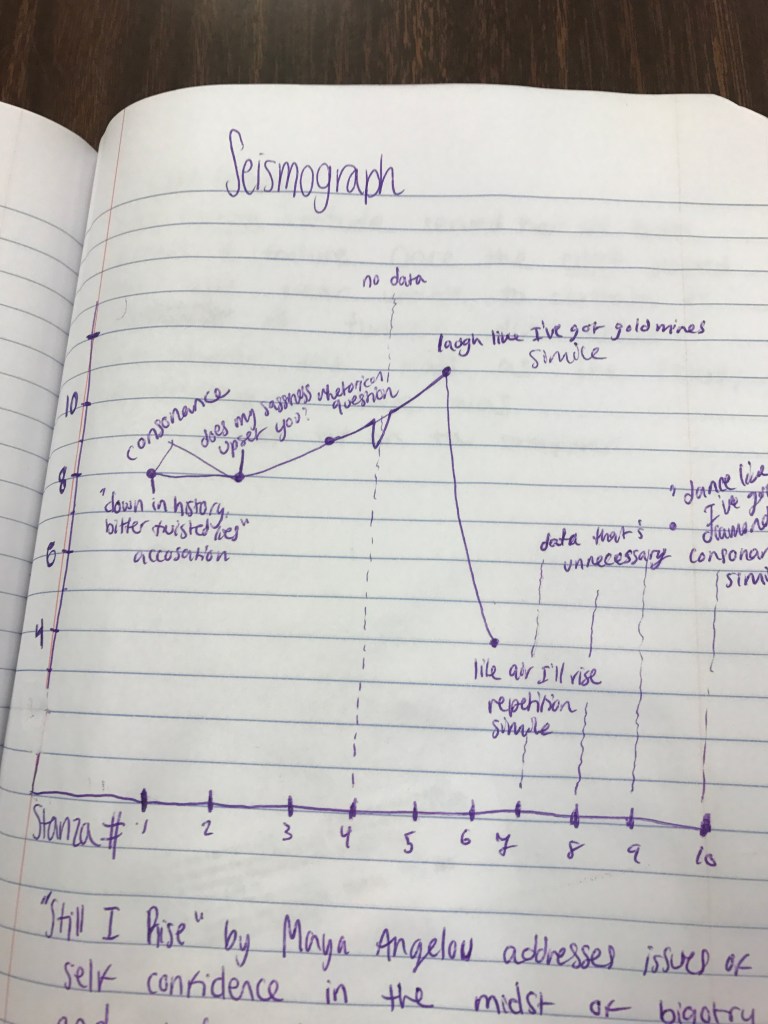 Seismograph
no data
laugh like I've got gold mines
simile
10
consonance
does my sassiness
upset you?
rhetorical
question
8
"down in history,
bitter twisted lies"
accosation
6
data that's
unnecessary
"dance like
I've got
diamond
consonan
simi
4
like air I'll rise
repetition
simile
Stanza # 1 2 3 4 5 6 7 8 9 10
"Still I Rise" by Maya Angelou addresses issues of
self confidence in the midst of bigotry
and